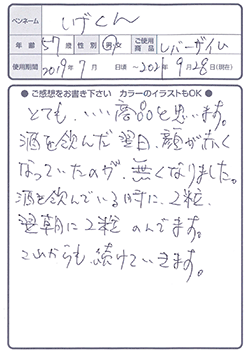 ペンネーム しげくん
年齢 57歳 性別 男・女 ご使用商品 レバーザイム
使用期間 2019年7月 日頃 ~2021年9月28日(現在)
●ご感想をお書き下さい カラーのイラストもOK●
とても、いい商品を思います。
酒を飲んだ翌日、顔が赤く
なっていたのが、無くなりました。
酒を飲んでいる時に、2粒、
翌朝に2粒 のんでます。
これからも 続けていきます。